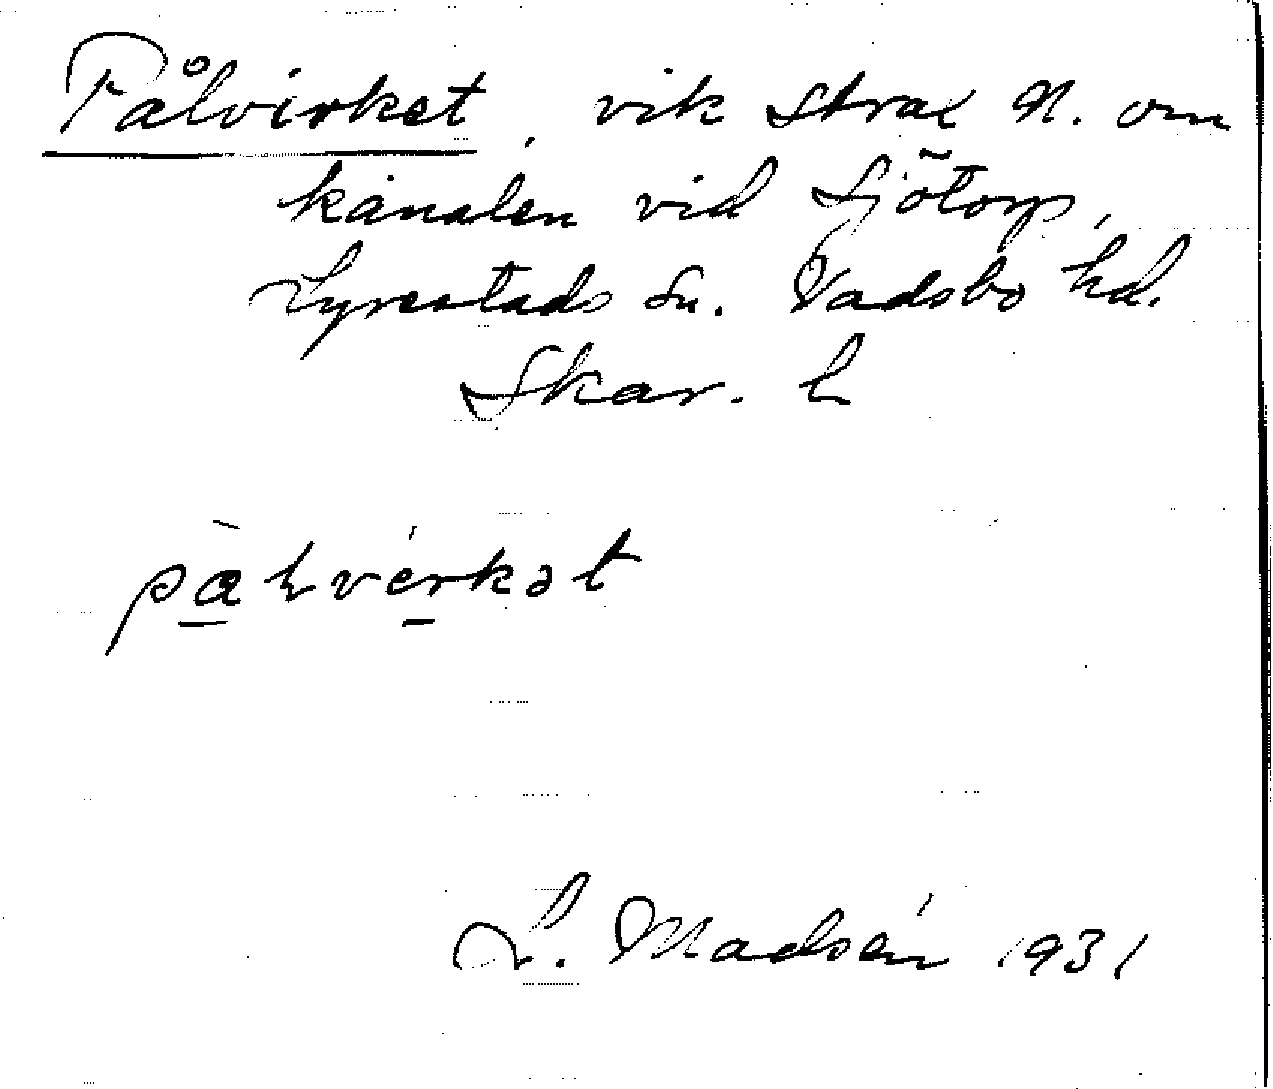 Pålvirket, vik strax N. om
kanalen vid Sjötorp,
Lyrestads sn. Vadsbo hd.
Skar. L
L. Madsén 1931